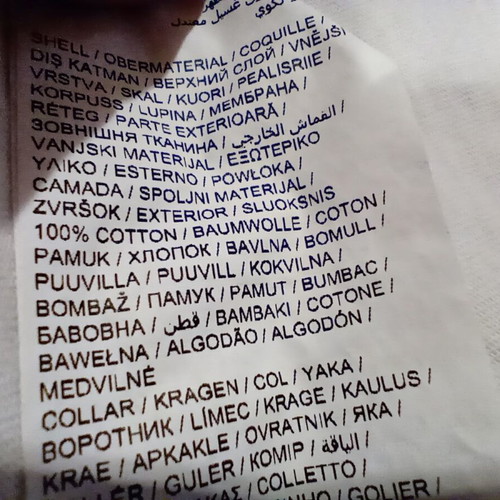 غسيل معتدل
كوي
SHELL / OBERMATERIAL / COQUILLE /
DIŞ KATMAN / ВЕРХНИЙ СЛОЙ / VNĚJŠÍ
VRSTVA / SKAL / KUORI / PEALISRIIE /
KORPUSS / LUPINA / МЕМБРАНА /
RÉTEG / PARTE EXTERIOARĂ /
ЗОВНІШНЯ ТКАНИНА / القماش الخارجي /
VANJSKI MATERIJAL / ΕΞΩΤΕΡΙΚΟ
ΥΛΙΚΟ / ESTERNO / POWŁOKA /
CAMADA / SPOLJNI MATERIJAL /
ZVRŠOK / EXTERIOR / SLUOKSNIS
100% COTTON / BAUMWOLLE / COTON /
PAMUK / ХЛОПОК / BAVLNA / BOMULL /
PUUVILLA / PUUVILL / KOKVILNA /
BOMBAŽ / ПАМУК / PAMUT / BUMBAC /
БАВОВНА / قطن / BAMBAKI / COTONE /
BAWEŁNA / ALGODÃO / ALGODÓN /
MEDVILNĖ
COLLAR / KRAGEN / COL / YAKA /
ВОРОТНИК / LÍMEC / KRAGE / KAULUS /
KRAE / APKAKLE / OVRATNIK / ЯКА /
GULER / КОМІР / الياقة /
COLLETTO /
GOLIER /